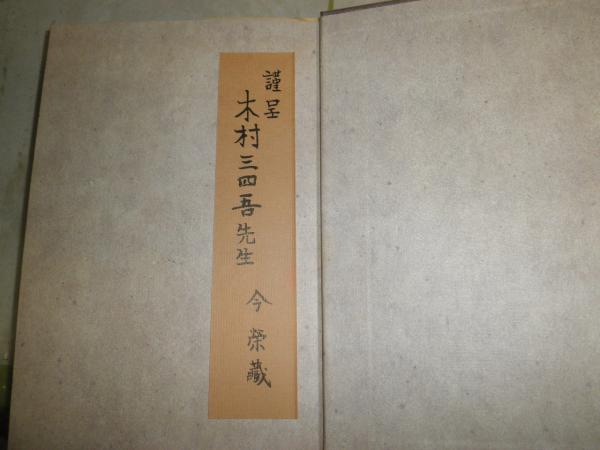 謹呈
木村三四吾先生
今榮藏